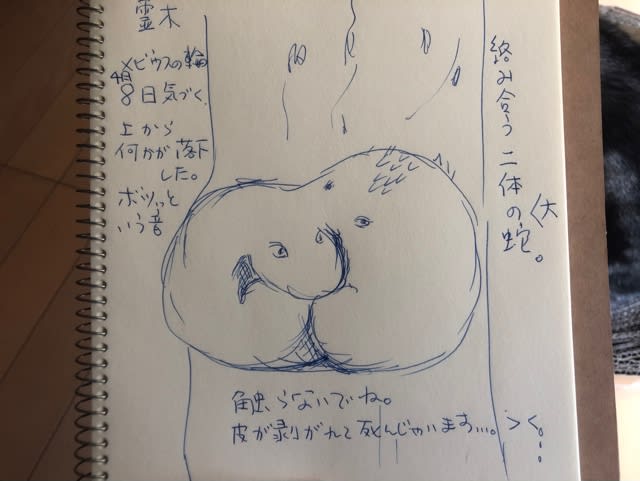 霊木
メビウスの輪
4月
8日気づく。
上から
何かが落下
した。
ボツっと
いう音
絡み合う二体の蛇。
触らないでね。
皮が剥がれて死んじゃいます…。